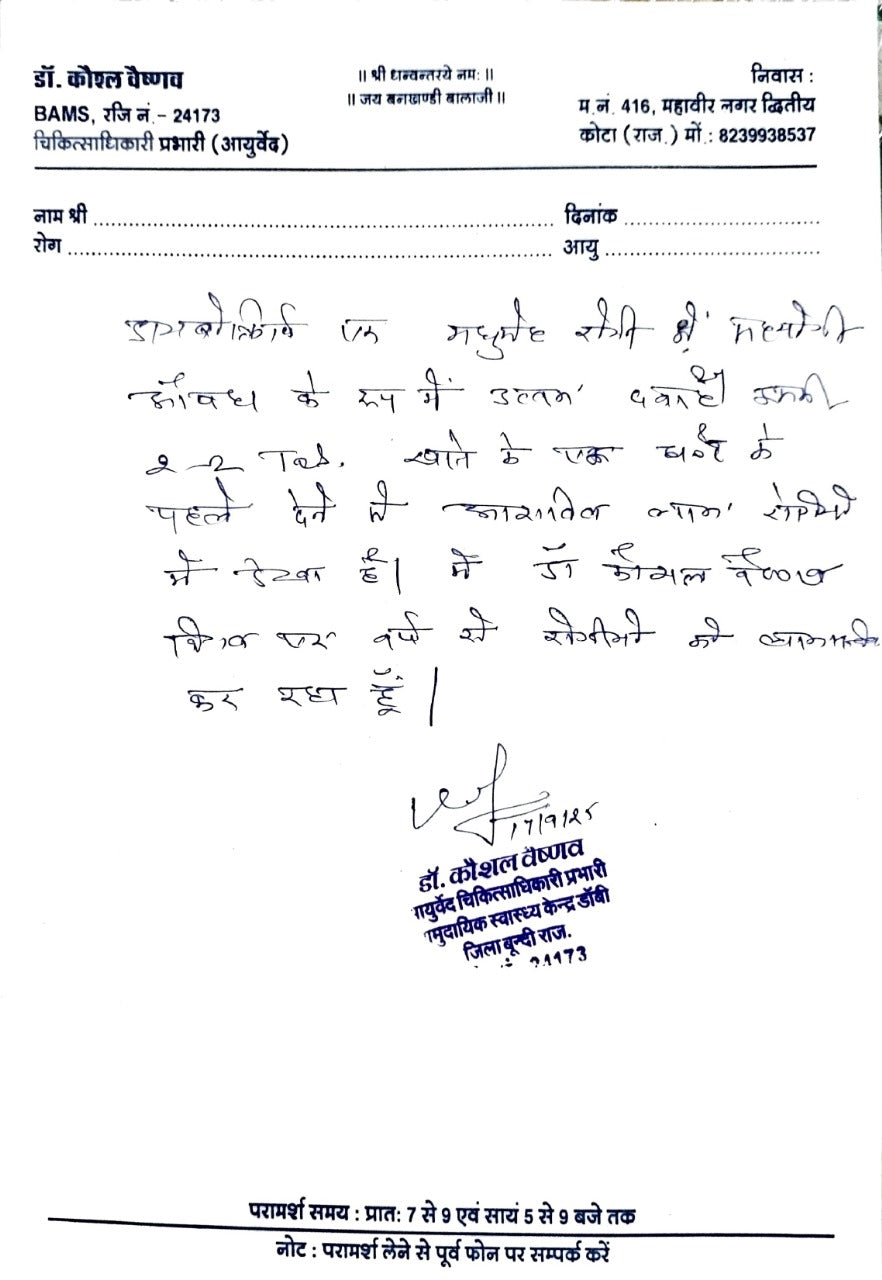 डॉ. कौश्ल वैष्णव
BAMS, रजि नं.- 24173
चिकित्साधिकारी प्रभारी (आयुर्वेद)
॥ श्री धान्वन्तरये नमः ॥
॥ जय बनखाण्डी बालाजी ॥
निवास :
म.नं. 416, महावीर नगर द्वितीय
कोटा (राज.) मों.: 8239938537
नाम श्री
दिनांक
रोग
आयु
एक मधुमेह रोगी में सहयोगी
औषध के रूप में उत्तम दवा है इसकी
2-2 Tab. खाने के एक घन्टे के
पहले देने से लाभ रोगियो
में देखा है। में डॉ कौशल वैष्णव
एक वर्ष से रोगीयो को
कर रहा हूँ।
17/9/25
डॉ. कौशल वैष्णव
ायुर्वेद चिकित्साधिकारी प्रभारी
ामुदायिक स्वास्थ्य केन्द्र डॉबी
जिला बून्दी राज.
24173
परामर्श समय : प्रात: 7 से 9 एवं सायं 5 से 9 बजे तक
नोट : परामर्श लेने से पूर्व फोन पर सम्पर्क करें